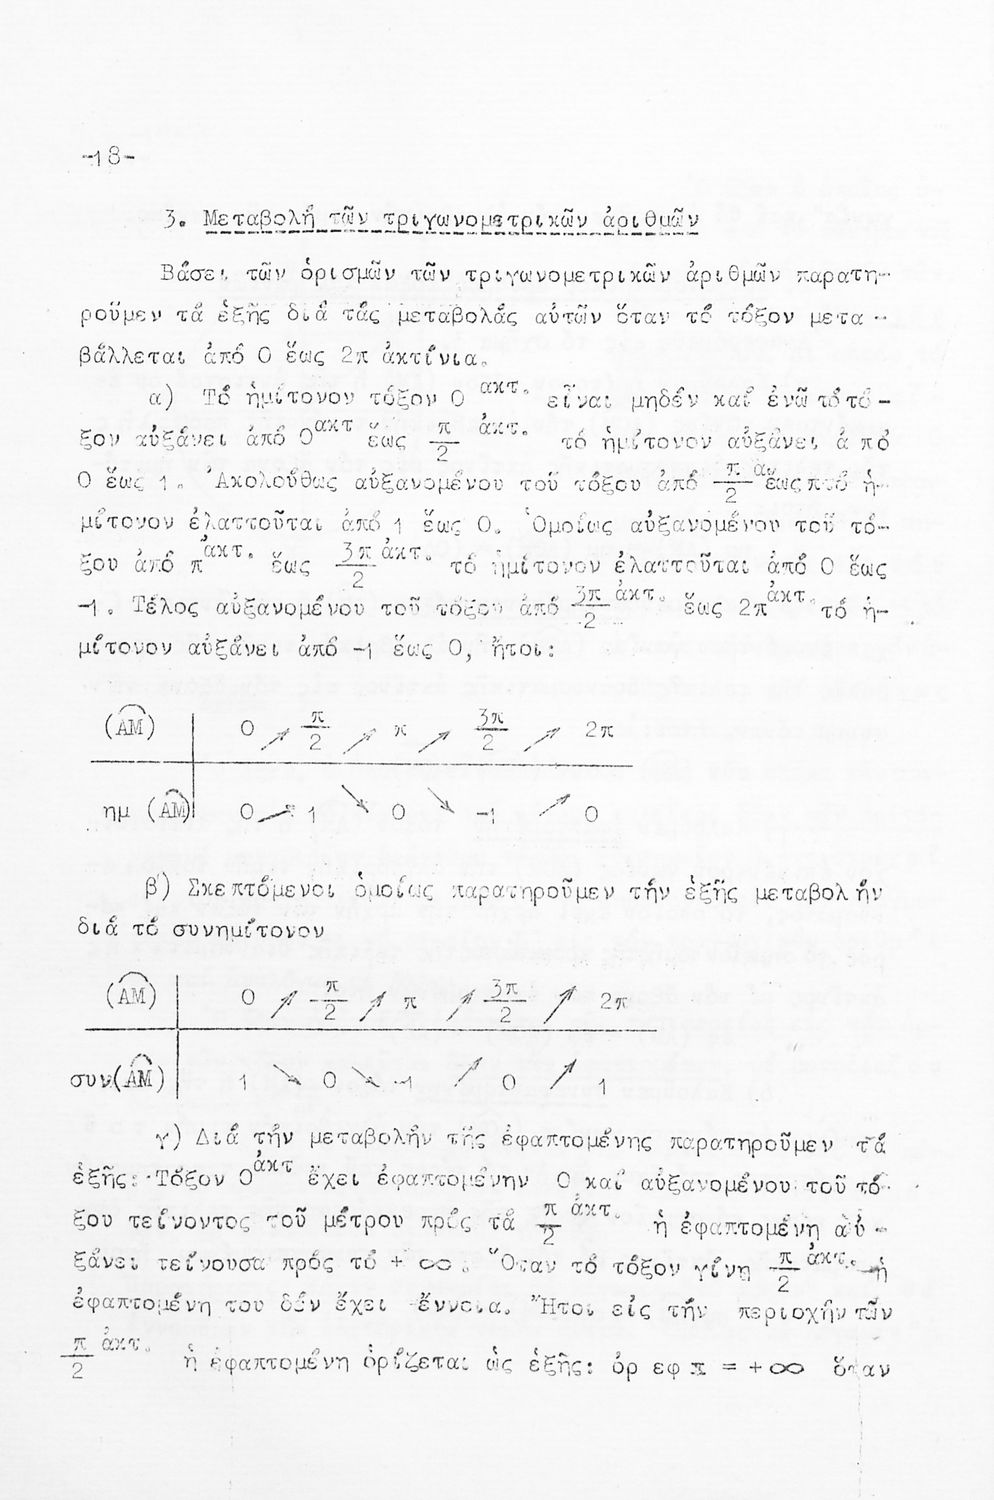 -18-
3. Μεταβολή τῶν τριγωνομετρικῶν ἀριθμῶν
Βάσει τῶν ὁρισμῶν τῶν τριγωνομετρικῶν ἀριθμῶν παρατη-
ροῦμεν τά ἑξῆς διά τάς μεταβολάς αὐτῶν ὅταν τό τόξον μετα-
βάλλεται ἀπό 0 ἕως 2π ἀκτίνια.
α) Τό ἡμίτονον τόξον 0 ἀκτ. εἶναι μηδέν καί ἐνῶ τό τό-
ξον αὐξάνει ἀπό 0 ἀκτ ἕως π/2 ἀκτ. τό ἡμίτονον αὐξάνει ἀπό
0 ἕως 1. Ἀκολούθως αὐξανομένου τοῦ τόξου ἀπό π/2 ἀ ἕως π τό ἡ-
μίτονον ἐλαττοῦται ἀπό 1 ἕως 0. Ὁμοίως αὐξανομένου τοῦ τό-
ξου ἀπό π ἀκτ. ἕως 3π/2 ἀκτ. τό ἡμίτονον ἐλαττοῦται ἀπό 0 ἕως
-1. Τέλος αὐξανομένου τοῦ τόξου ἀπό 3π/2 ἀκτ. ἕως 2π ἀκτ. τό ἡ-
μίτονον αὐξάνει ἀπό -1 ἕως 0, ἤτοι:
(ΑΜ) 0 ↗ π/2 ↗ π ↗ 3π/2 ↗ 2π
ημ (ΑΜ) 0 ↗ 1 ↘ 0 ↘ -1 ↗ 0
β) Σκεπτόμενοι ὁμοίως παρατηροῦμεν τήν ἑξῆς μεταβολήν
διά τό συνημίτονον
(ΑΜ) 0 ↗ π/2 ↗ π ↗ 3π/2 ↗ 2π
συν(ΑΜ) 1 ↘ 0 ↘ -1 ↗ 0 ↗ 1
γ) Διά τήν μεταβολήν τῆς ἐφαπτομένης παρατηροῦμεν τά
ἑξῆς: Τόξον 0 ἀκτ ἔχει ἐφαπτομένην 0 καί αὐξανομένου τοῦ τό-
ξου τείνοντος τοῦ μέτρου πρός τά π/2 ἀκτ. ἡ ἐφαπτομένη αὐ-
ξάνει τείνουσα πρός τό + ∞. Ὅταν τό τόξον γίνῃ π/2 ἀκτ. ἡ
ἐφαπτομένη του δέν ἔχει ἔννοια. Ἤτοι εἰς τήν περιοχήν τῶν
π/2 ἀκτ. ἡ ἐφαπτομένη ὁρίζεται ὡς ἑξῆς: ὁρ εφ π = +∞ ὅταν